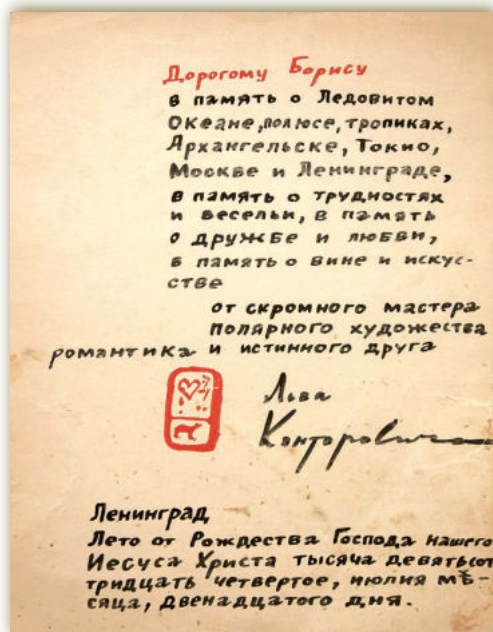 Дорогому Борису
в память о Ледовитом
Океане, полюсе, тропиках,
Архангельске, Токио,
Москве и Ленинграде,
в память о трудностях
и весельи, в память
о дружбе и любви,
в память о вине и искус-
стве
от скромного мастера
полярного художества
романтика и истинного друга
Льва
Канторовича
Ленинград
Лето от Рождества Господа нашего
Иесуса Христа тысяча девятьсот
тридцать четвертое, июлия мѣ-
сяца, двенадцатого дня.